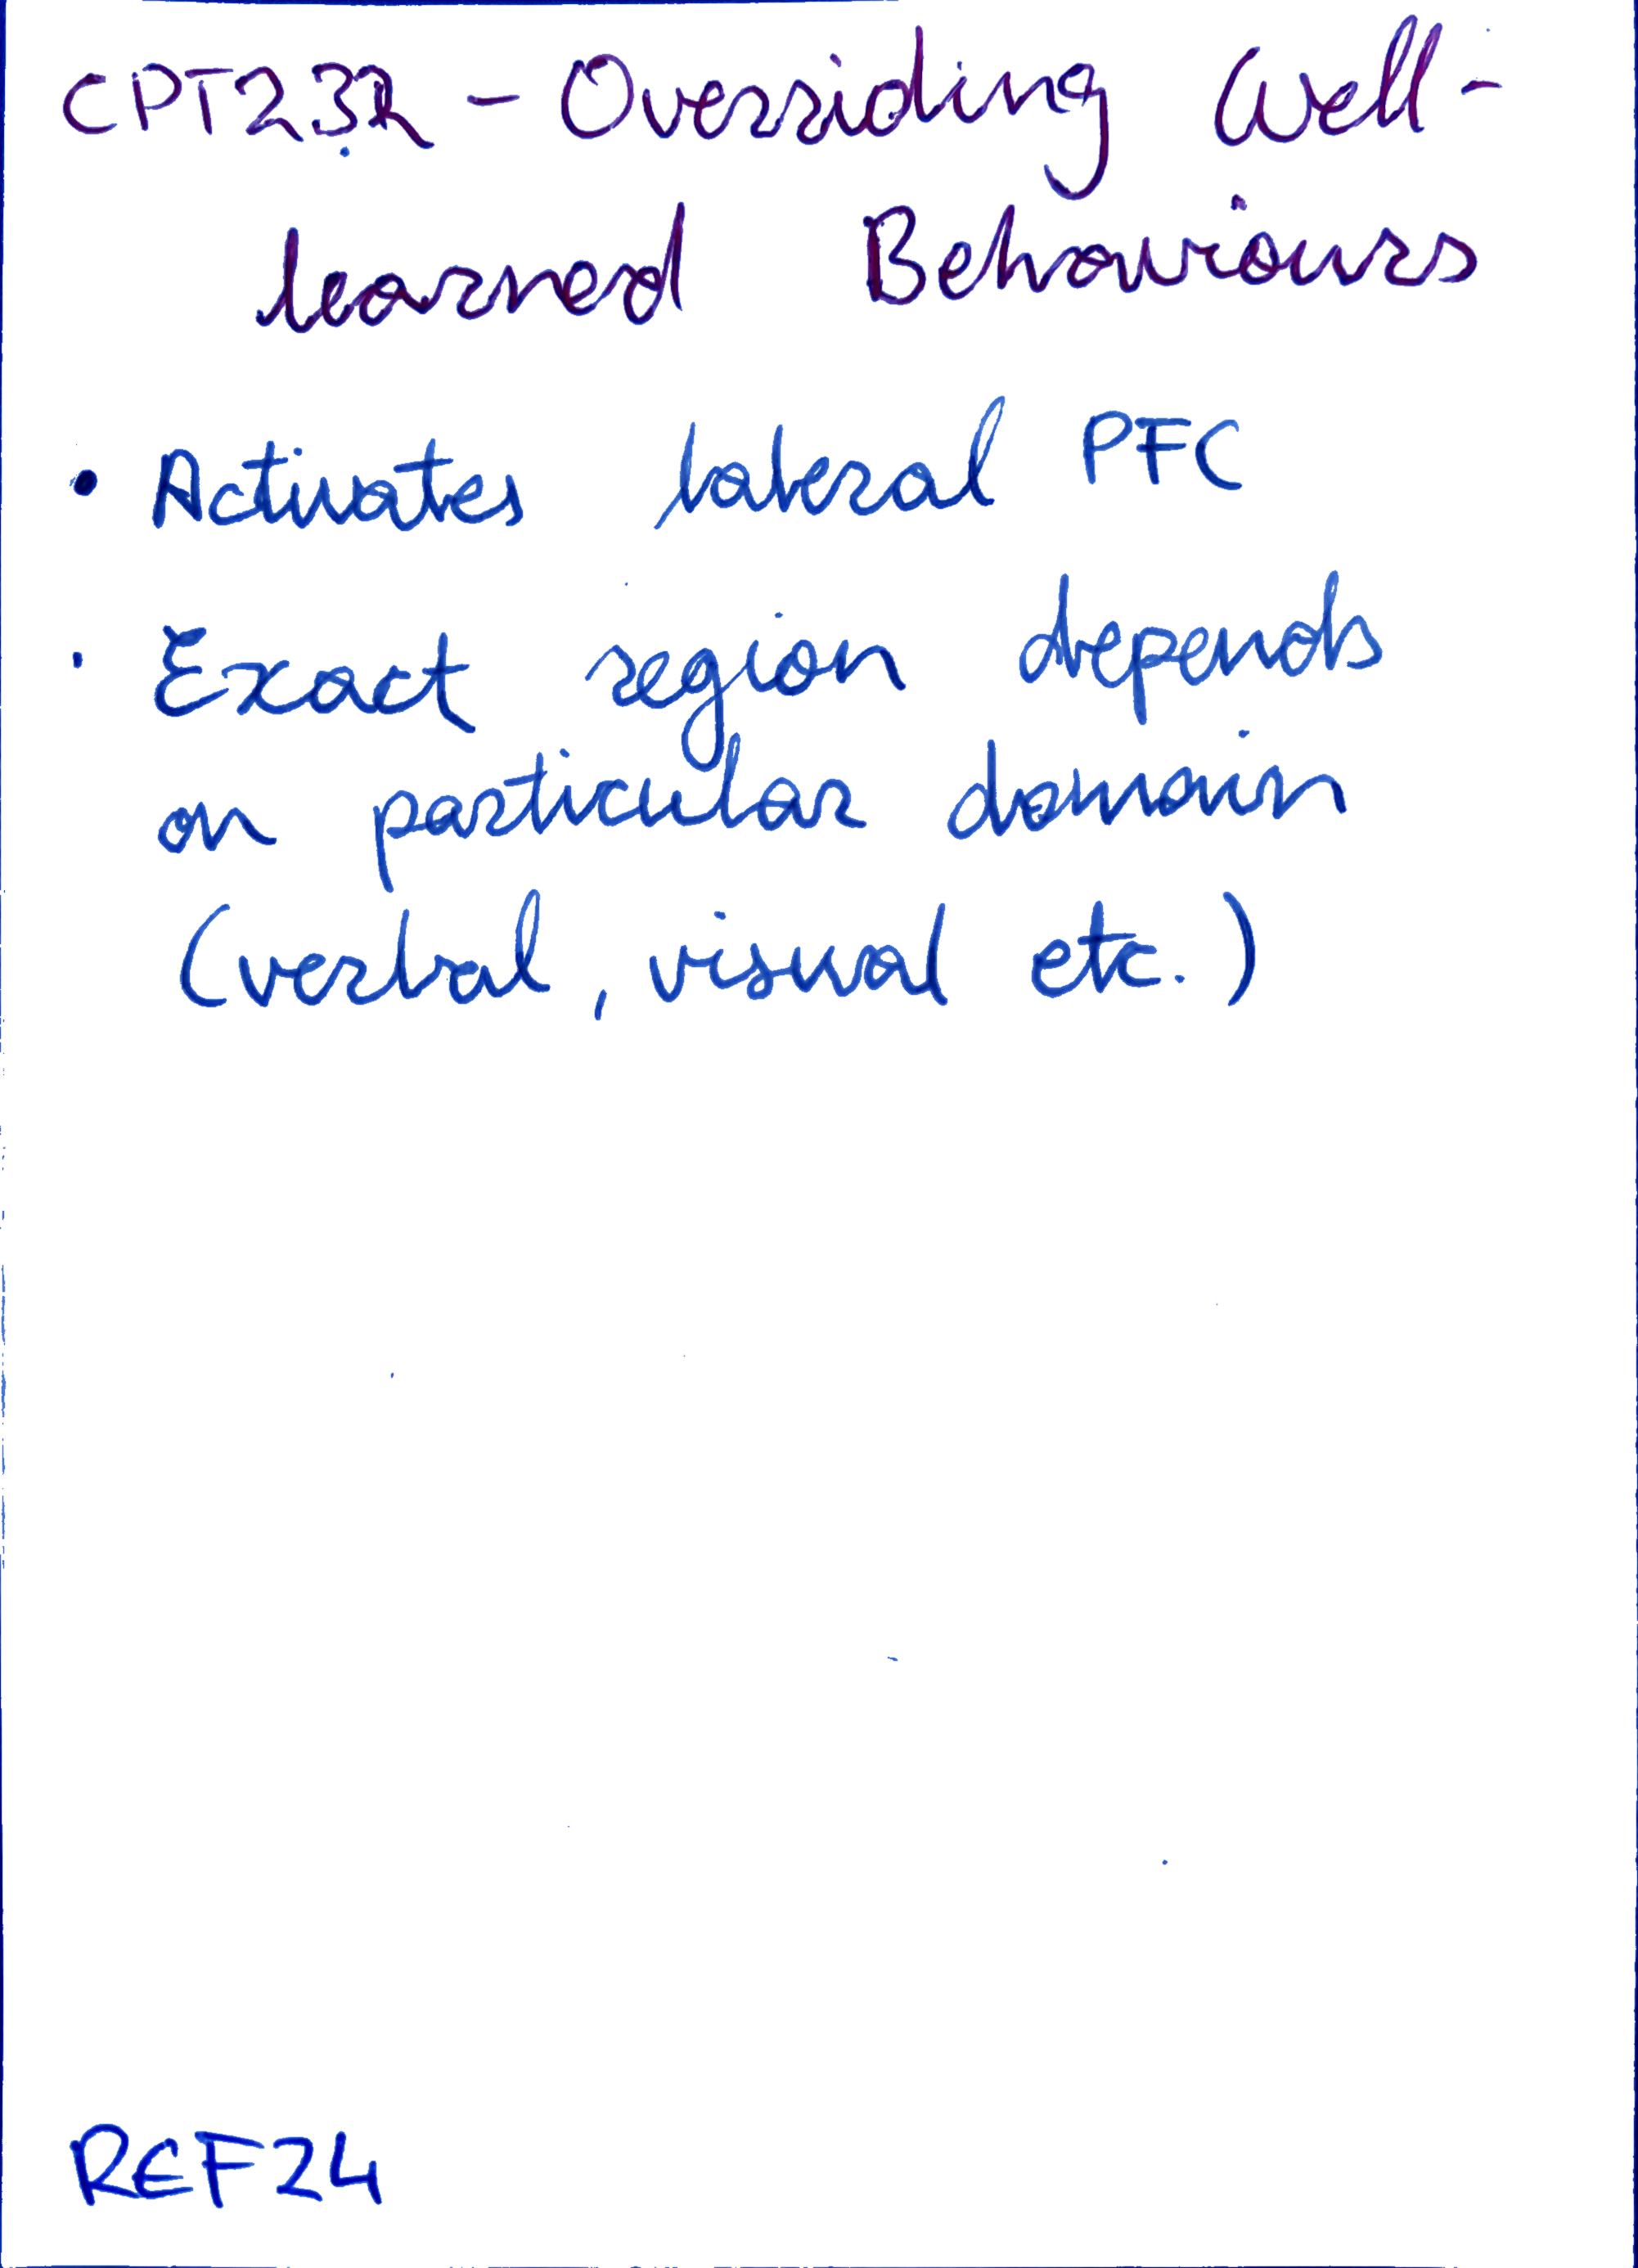 CPT232 - Overriding Well-
learned Behaviours
• Activates lateral PFC
• Exact region depends
on particular domain
(verbal, visual etc.)
REF24